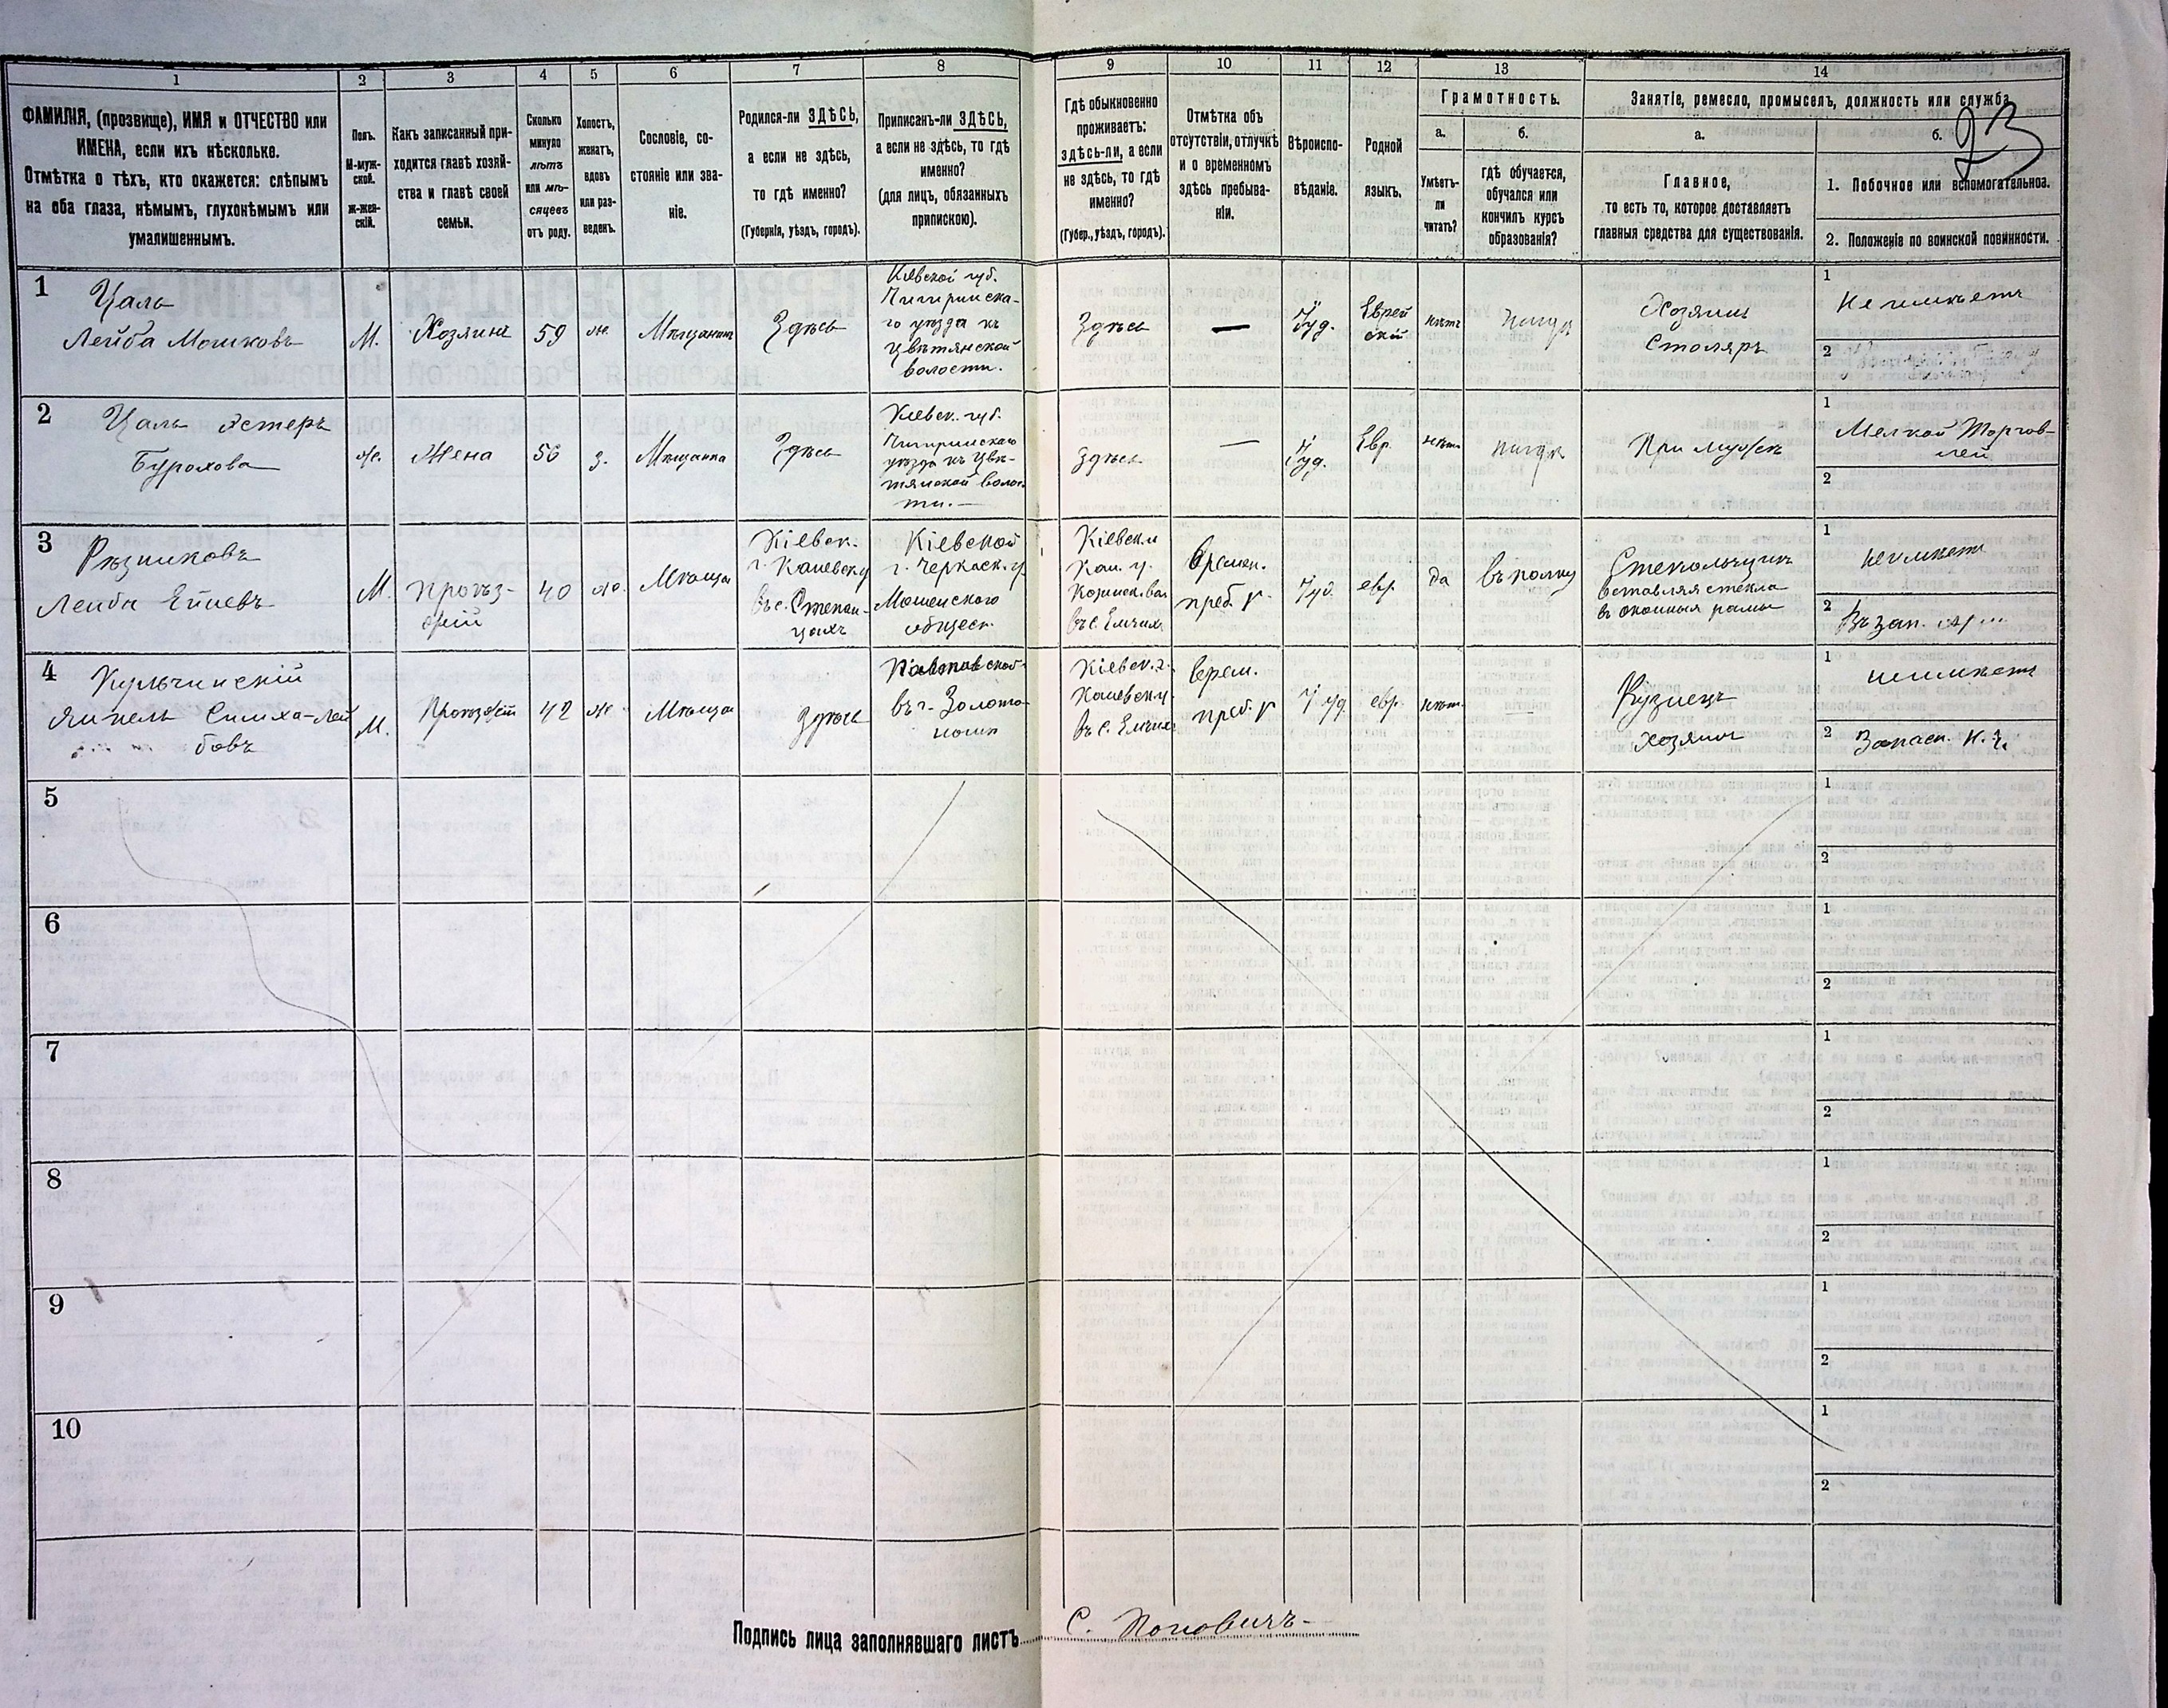 1 2 3 4 5 6 7 8 9 10 11 12 13 14
ФАМИЛІЯ, (прозвище), ИМЯ и ОТЧЕСТВО или
ИМЕНА, если ихъ нѣсколько.
Отмѣтка о тѣхъ, кто окажется: слѣпымъ
на оба глаза, нѣмымъ, глухонѣмымъ или
умалишеннымъ.
Полъ.
М-муж-
ской.
ж-жен-
скій.
Какъ записанный при-
ходится главѣ хозяй-
ства и главѣ своей
семьи.
Сколько
минуло
лѣтъ
или мѣ-
сяцевъ
отъ роду.
Холостъ,
женатъ,
вдовъ
или раз-
веденъ.
Сословіе, со-
стояніе или зва-
ніе.
Родился-ли ЗДѢСЬ,
а если не здѣсь,
то гдѣ именно?
(Губернія, уѣздъ, городъ).
Приписанъ-ли ЗДѢСЬ,
а если не здѣсь, то гдѣ
именно?
(для лицъ, обязанныхъ
припискою).
Гдѣ обыкновенно
проживаетъ:
здѣсь-ли, а если
не здѣсь, то гдѣ
именно?
(Губер., уѣздъ, городъ).
Отмѣтка объ
отсутствіи, отлучкѣ
и о временномъ
здѣсь пребыва-
ніи.
Вѣроиспо-
вѣданіе.
Родной
языкъ.
Грамотность.
а.
Умѣетъ-
ли
читать?
б.
гдѣ обучается,
обучался или
кончилъ курсъ
образованія?
Занятіе, ремесло, промыселъ, должность или служба
23
а.
Главное,
то есть то, которое доставляетъ
главныя средства для существованія.
б.
1. Побочное или вспомогательное.
2. Положеніе по воинской повинности.
1
Цаль
Лейба Мошковъ
М.
Хозяинъ
59
ж.
Мѣщанинъ
Здѣсь
Кіевской губ.
Чигиринска-
го уѣзда къ
Цвѣтянской
волости.
Здѣсь
—
Іуд.
Еврей
скій
нѣтъ
нигдѣ
Хозяинъ
Столяръ
1
Не имѣетъ
2
2
Цаль Эстеръ
Бурохова
ж.
Жена
56
з.
Мѣщанка
Здѣсь
Кіевск. губ.
Чигиринскаго
уѣзда къ Цвѣ-
тянской волос-
ти.—
здѣсь
—
Іуд.
Евр.
нѣтъ
нигдѣ
При мужѣ
1
Мелкой Торгов-
лей
2
3
Рѣзниковъ
Лейба
М.
Проѣз-
жій
40
ж.
Мѣща
Кіевск.
г. Каневск. у
въ с. Степан-
цахъ
Кіевской
г. Черкаск. у.
Мошенского
общест.
Кіевск.
Кан. у.
въ с. Емчиха
Времен.
преб.
Іуд.
евр.
да
въ полку
Стекольщикъ
вставляя стекла
въ оконныя рамы
1
не имѣетъ
2
Въ зап.
4
Кульчинскій
Янкель Симха-Лей
бовъ
М.
Проѣзжій
42
ж
Мѣща
Здѣсь
Полтавской
въ г. Золото-
ноши
Кіевск. г.
Каневск. у.
въ с. Емчиха
Врем.
преб.
Іуд
евр.
нѣтъ
—
Кузнецъ
хозяинъ
1
не имѣетъ
2
Запасн. н. ч.
5
1
2
6
1
2
7
1
2
8
1
2
9
1
2
10
1
2
Подпись лица заполнявшаго листъ С. Поповичъ